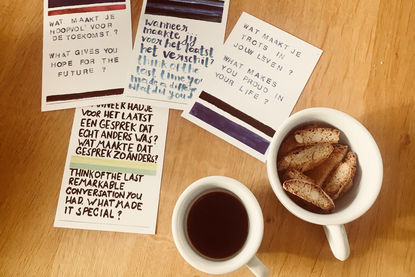 WAT MAAKT JE
HOOPVOL VOOR
DE TOEKOMST?
WHAT GIVES YOU
HOPE FOR THE
FUTURE ?
wanneer
maakte jij
voor het laatst
het verschil?
think of the
last time you
made a difference
what did you
WAT MAAKT JE
TROTS IN
JOUW LEVEN ?
WHAT MAKES
YOU PROUD IN
YOUR LIFE ?
WANNEER HAD JE
VOOR HET LAATST
EEN GESPREK DAT
ECHT ANDERS WAS?
WAT MAAKTE DAT
GESPREK ZO ANDERS?
THINK OF THE LAST
REMARKABLE
CONVERSATION YOU
HAD. WHAT MADE
IT SPECIAL ?